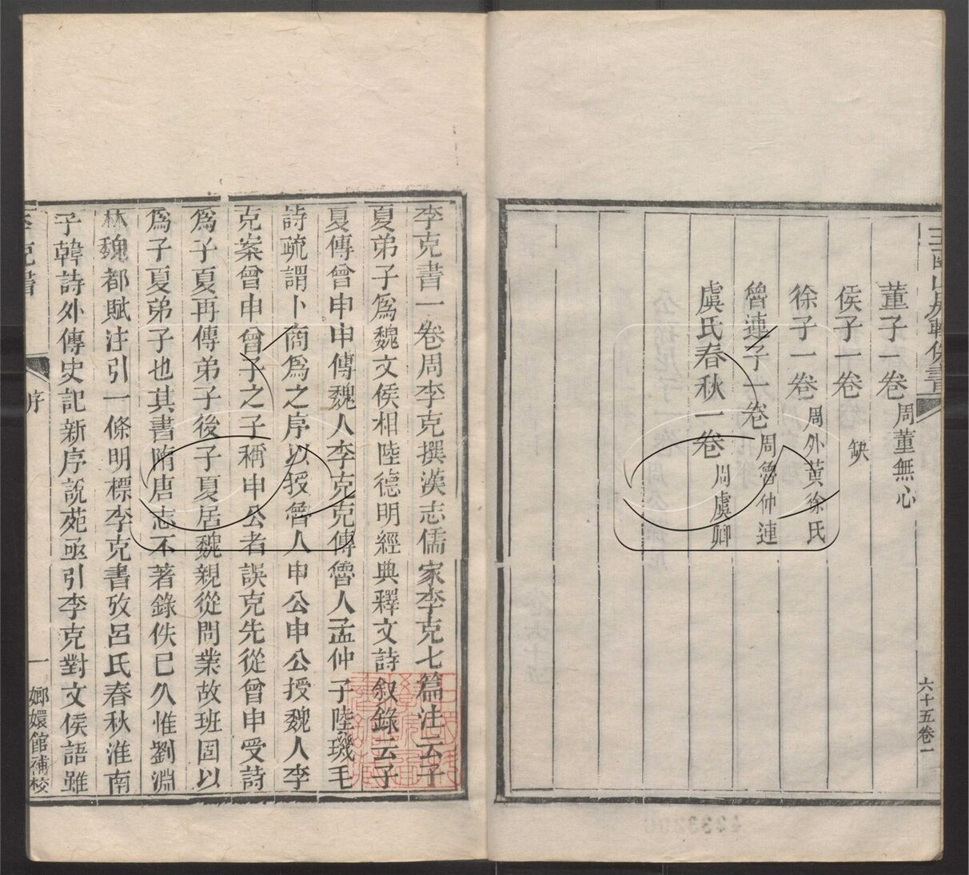 玉函山房輯佚書
六十五卷一
董子一卷周董無心
侯子一卷 缺
徐子一卷周外黃徐氏
魯連子一卷周魯仲連
虞氏春秋一卷周虞卿
李克書一卷周李克撰漢志儒家李克七篇注云子
夏弟子為魏文侯相陸德明經典釋文詩叙錄云子
夏傳曾申申傳魏人李克克傳魯人孟仲子陸璣毛
詩疏謂卜商為之序以授魯人申公申公授魏人李
克案曾申曾子之子稱申公者誤克先從曾申受詩
為子夏再傳弟子後子夏居魏親從問業故班固以
為子夏弟子也其書隋唐志不著錄佚已久惟劉淵
林魏都賦注引一條明標李克書攷呂氏春秋淮南
子韓詩外傳史記新序說苑亟引李克對文侯語雖
李克書
序
一
嫏嬛館補校